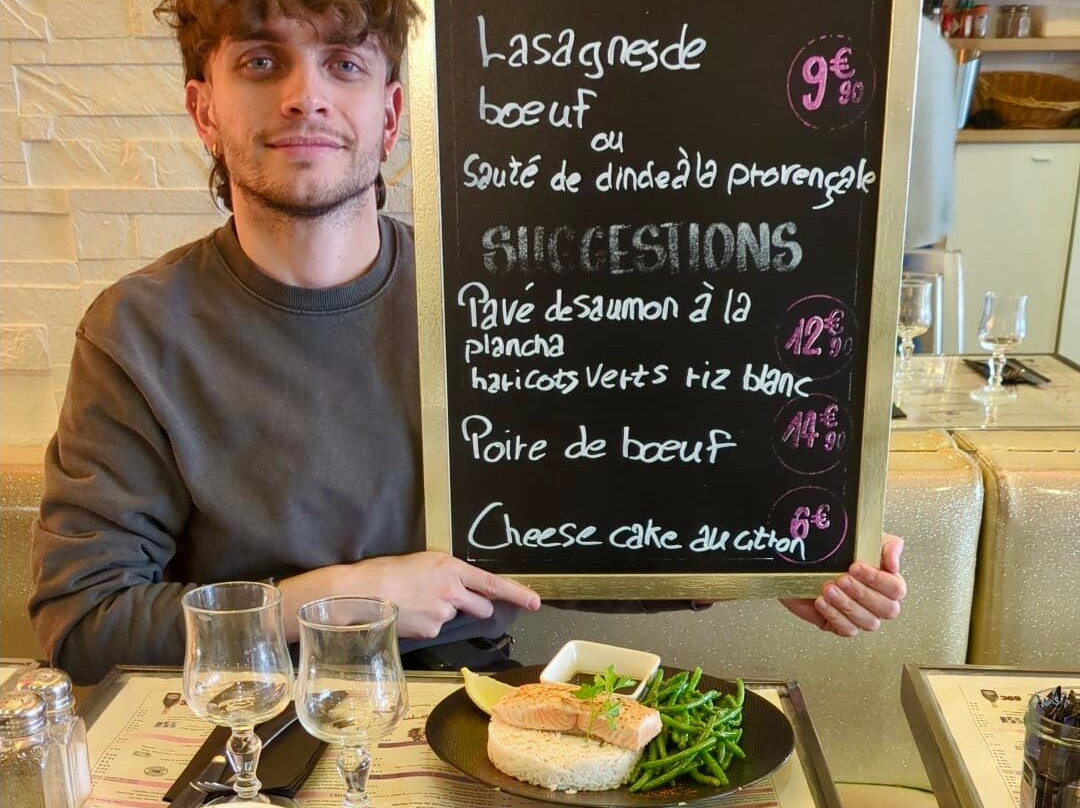 Lasagnes de
9€90
boeuf
ou
Sauté de dinde à la provençale
SUGGESTIONS
Pavé de saumon à la
plancha
12€90
haricots verts riz blanc
Poire de bœuf
14€90
Cheese cake au citron
6€